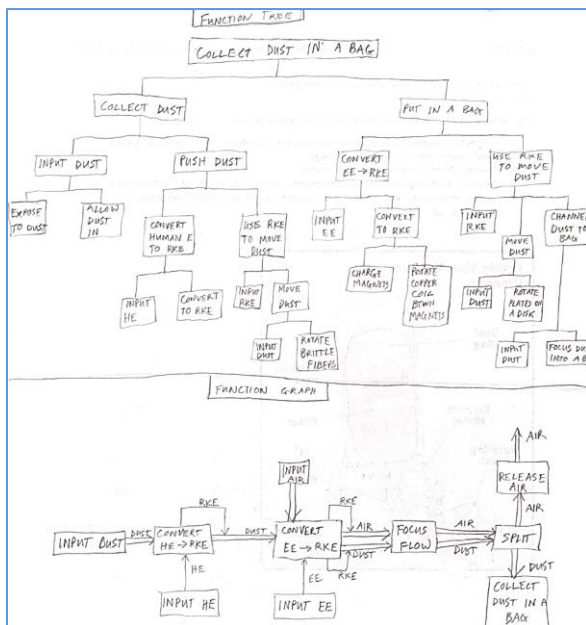 FUNCTION TREE
COLLECT DUST IN A BAG
COLLECT DUST
PUT IN A BAG
INPUT DUST
PUSH DUST
CONVERT
EE → RKE
USE RKE
TO MOVE
DUST
EXPOSE
TO DUST
ALLOW
DUST
IN
CONVERT
HUMAN E
TO RKE
USE RKE
TO MOVE
DUST
INPUT
EE
CONVERT
TO RKE
INPUT
RKE
MOVE
DUST
CHANNEL
DUST TO
BAG
INPUT
HE
CONVERT
TO RKE
INPUT
RKE
MOVE
DUST
CHARGE
MAGNETS
ROTATE
COPPER
COIL
BTWN
MAGNETS
INPUT
DUST
ROTATE
PLATES ON
A DISK
INPUT
DUST
ROTATE
BRITTLE
FIBERS
INPUT
DUST
FOCUS DU
INTO A B
FUNCTION GRAPH
INPUT DUST
DUST
CONVERT
HE → RKE
RKE
HE
INPUT HE
DUST
INPUT
AIR
CONVERT
EE → RKE
RKE
RKE
EE
INPUT EE
AIR
DUST
FOCUS
FLOW
AIR
DUST
SPLIT
AIR
RELEASE
AIR
AIR
DUST
COLLECT
DUST IN A
BAG